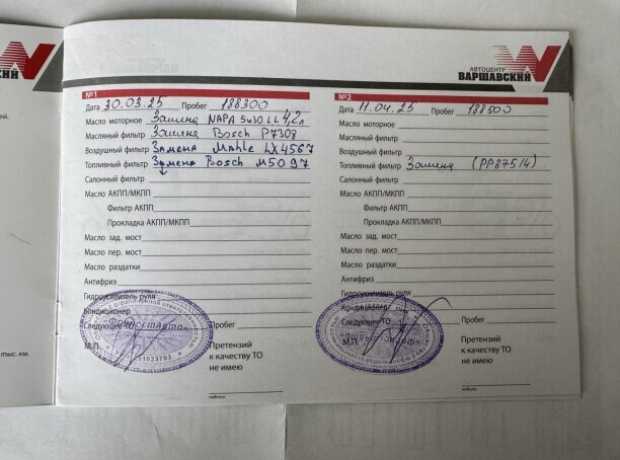 СКИЙ
АВТОЦЕНТР
ВАРШАВСКИЙ
№1
Дата 30.03.25 Пробег 188300
Масло моторное Замена NAPA 5w30 LL 4,2л
Масляный фильтр Замена Bosch P7308
Воздушный фильтр Замена Mahle LX4567
Топливный фильтр Замена Bosch M5097
Салонный фильтр
Масло АКПП/МКПП
Фильтр АКПП
Прокладка АКПП/МКПП
Масло зад. мост
Масло пер. мост
Масло раздатки
Антифриз
Гидроусилитель руля
Кондиционер
Следующее ТО Пробег
М.П. Претензий
к качеству ТО
не имею
№2
Дата 11.04.25 Пробег 188500
Масло моторное
Масляный фильтр
Воздушный фильтр
Топливный фильтр Замена (PP875/4)
Салонный фильтр
Масло АКПП/МКПП
Фильтр АКПП
Прокладка АКПП/МКПП
Масло зад. мост
Масло пер. мост
Масло раздатки
Антифриз
Гидроусилитель руля
Следующее ТО Пробег
М.П. Претензий
к качеству ТО
не имею